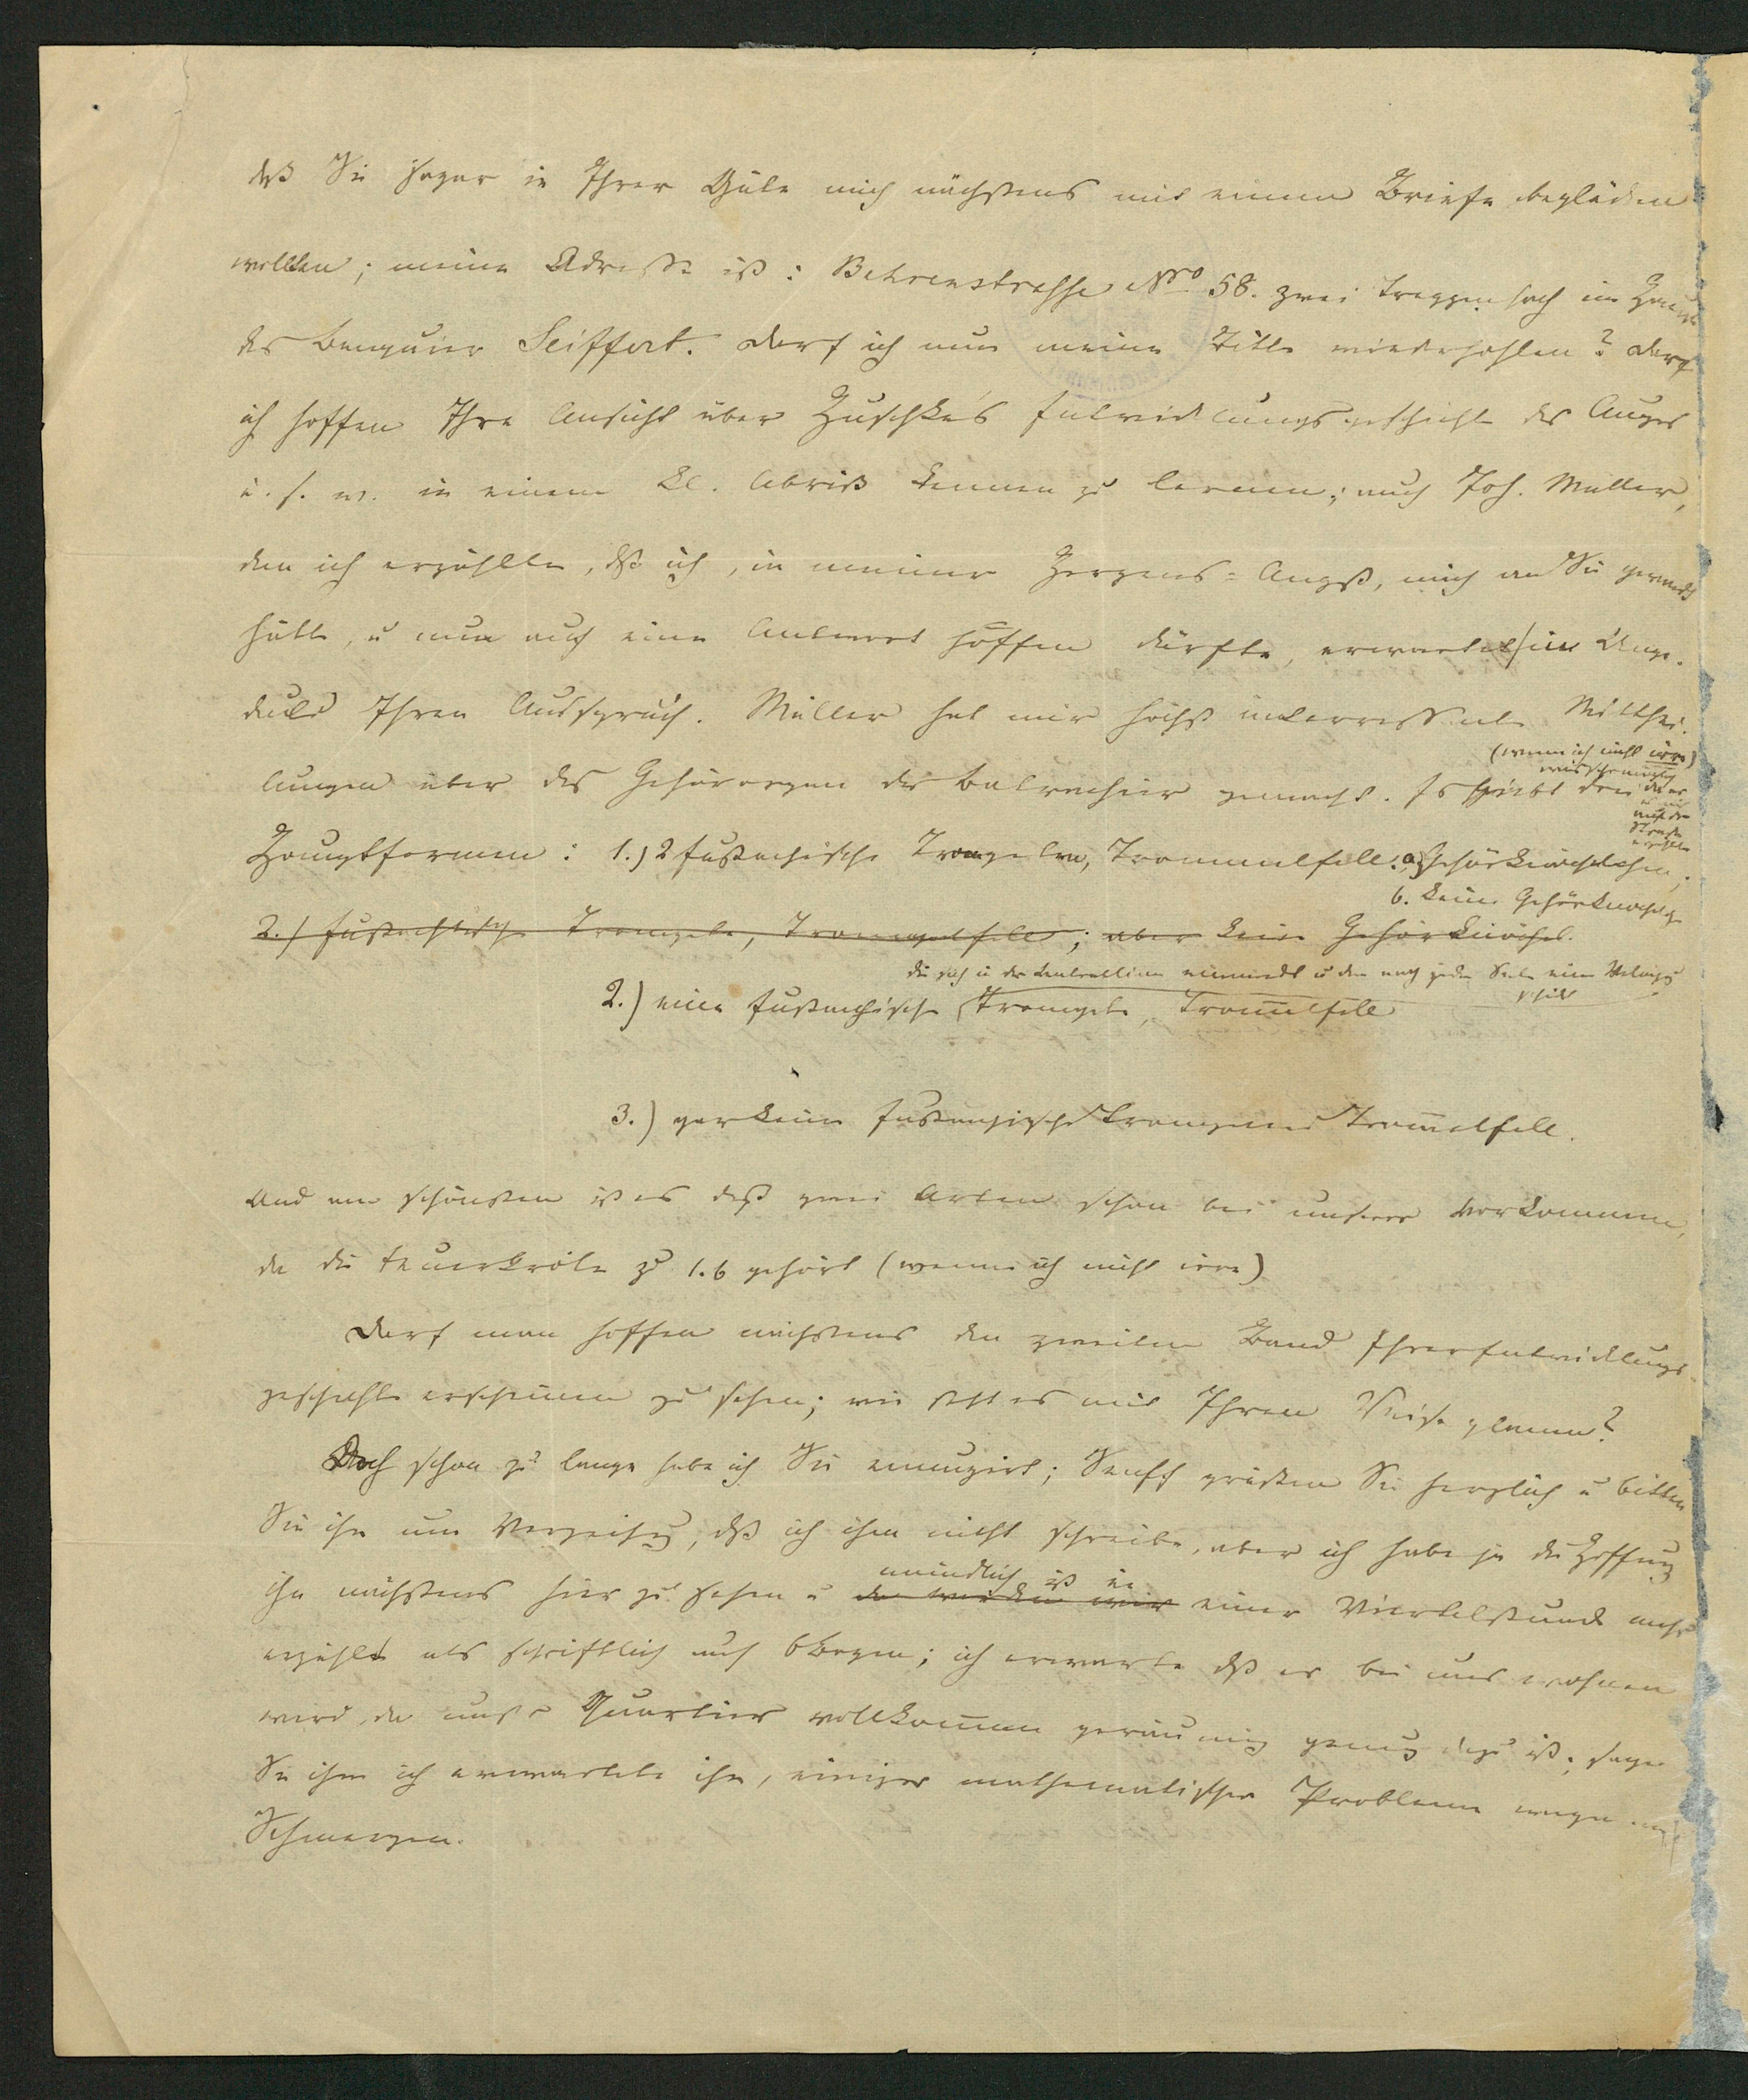 daß Sie sogar in Ihrer Güte mich nächstens mit einem Briefe beglücken
wollten; meine Adresse ist: Behrenstrasse No 58. zwei Treppen hoch im Hause
des Banquier Seiffert. Darf ich nun meine Bitte wiederhohlen? Darf
ich hoffen Ihre Ansicht über Huschke's Entwicklungsgeschichte des Auges
u. s. w. in einem kl. Abriß kennen zu lernen; auch Joh. Müller,
dem ich erzählte, daß ich, in meiner Herzens-Angst, mich an Sie gewandt
hätte, u nun auch eine Antwort hoffen dürfte, erwartet in Unge-
duld Ihren Ausspruch. Müller hat mir höchst interressante Mitthei-
lungen über das Gehörorgan der Batrachier gemacht. Es giebt drei
(wenn ich nicht irre)
da er
auf der
Straße
erzählte
Hauptformen: 1.) 2 Eustachische Trompeten, Trommelfell. a) Gehörknöchelchen;
b. keine Gehörknochen
2.) Eustachische Trompete, Trommelfell; aber kein Gehörknöchel.
die sich in der Centrallinie einmündet u dann nach jeder Seite eine
schickt
2.) eine Eustachische Trompete, Trommelfell
3.) gar keine Eustachische Trompete Trommelfell.
Und am schönsten ist es daß zwei Arten schon bei unseren vorkommen,
da die Feuerkröte zu 1.b gehört (wenn ich nicht irre)
Darf man hoffen nächstens den zweiten Band Ihrer Entwicklungs-
geschichte erscheinen zu sehen; wie steht es mit Ihren Reiseplänen?
Doch schon zu lange habe ich Sie ennuyirt; Senff grüßen Sie herzlich u bitten
Sie ihn um Verzeihung, daß ich ihm nicht schreibe, aber ich habe ja die Hoffnung
ihn nächstens hier zu sehen u mündlich ist in einer Viertelstunde mehr
erzählt als schriftlich auf 6 Bogen; ich erwarte daß er bei uns wohnen
wird, da unser Quartier vollkommen geräumig genug dazu ist; sagen
Sie ihm ich erwartete ihn, einiger mathematischer Probleme wegen mit
Schmerzen.